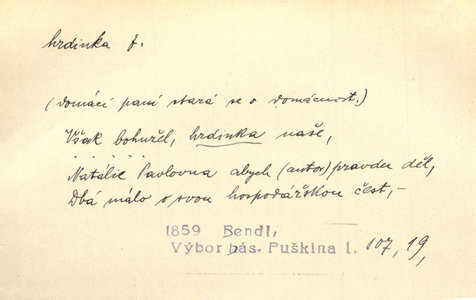 hrdinka f.
(domácí paní stará se o domácnost.)
Však bohužel, hrdinka naše,
. . . . . .
Natálie Pavlovna abych (autor) pravdu děl,
Dbá málo o svou hospodářskou čest, -
1859 Bendl,
Výbor bás. Puškina 1. 107, 19,